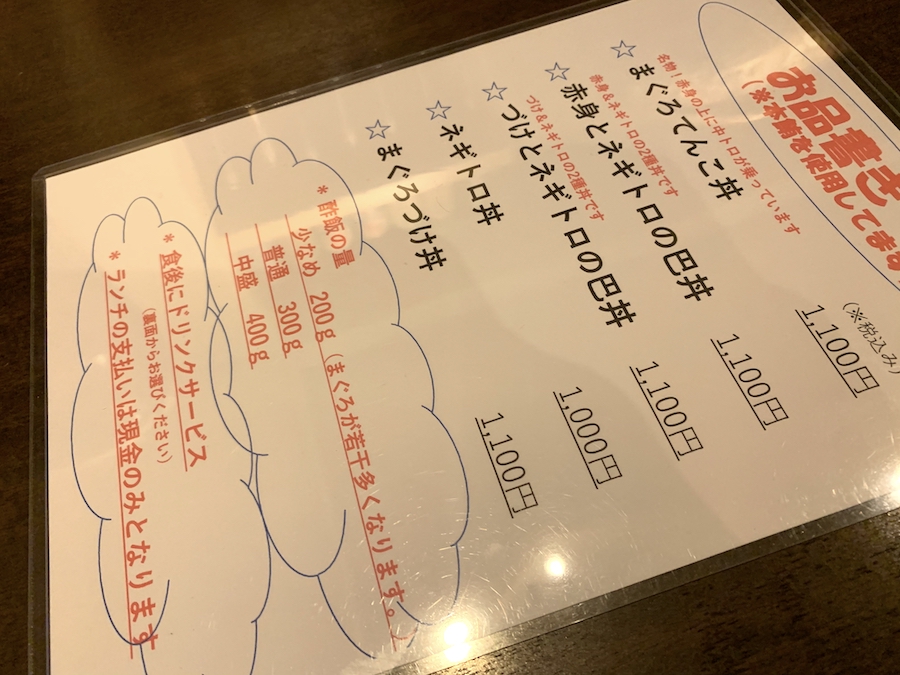 お品書き
(※本鮪を使用してます
(※税込み)
☆まぐろてんこ丼 1,100円
名物！赤身の上に中トロが乗っています
☆赤身とネギトロの巴丼 1,100円
赤身＆ネギトロの2種丼です
☆づけとネギトロの巴丼 1,100円
づけ＆ネギトロの2種丼です
☆ネギトロ丼 1,000円
☆まぐろづけ丼 1,100円
＊酢飯の量
少なめ 200g（まぐろが若干多くなります。）
普通 300g
中盛 400g
＊食後にドリンクサービス
（裏面からお選びください）
＊ランチの支払いは現金のみとなります